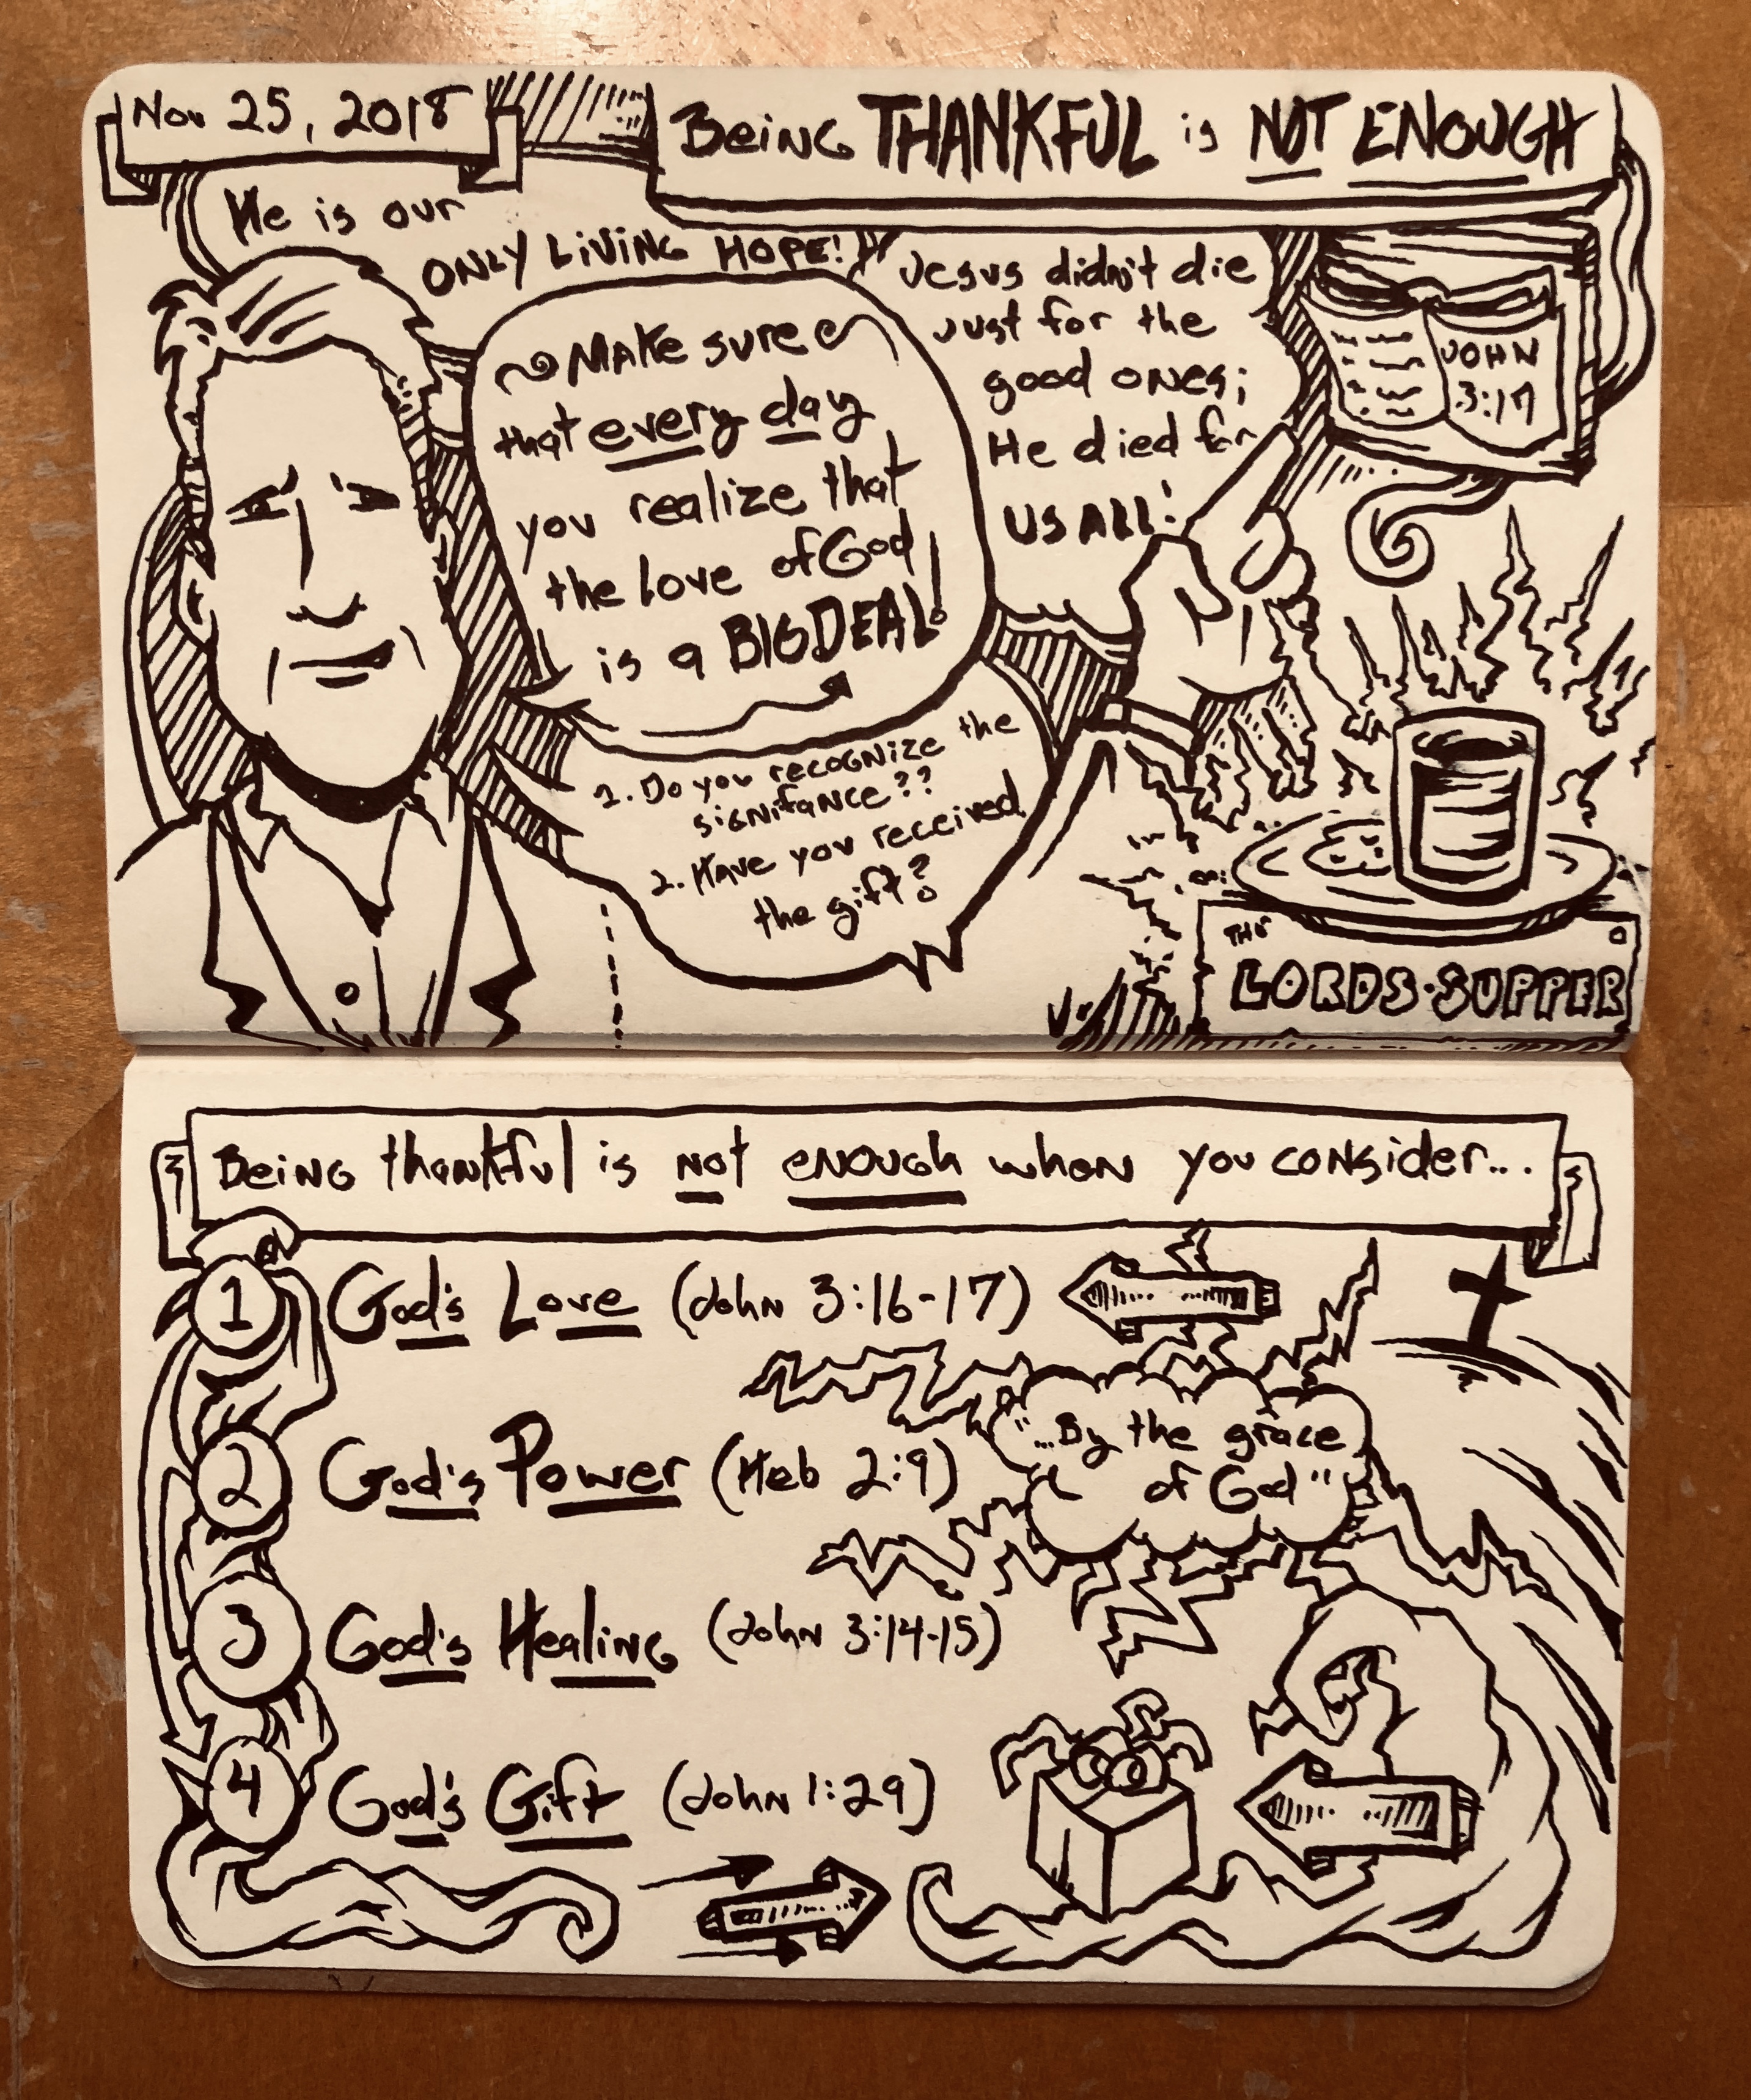 Nov 25, 2018
Being THANKFUL is NOT ENOUGH
He is our
ONLY LIVING HOPE!
Make sure
that every day
you realize that
the love of God
is a BIG DEAL!
Jesus didn't die
just for the
good ones;
He died for
US ALL!
JOHN
3:17
1. Do you recognize the
signifance??
2. Have you received
the gift?
THE
LORDS·SUPPER
Being thankful is not enough when you consider...
1 God's Love (John 3:16-17)
2 God's Power (Heb 2:9)
"...By the grace
of God"
3 God's Healing (John 3:14-15)
4 God's Gift (John 1:29)